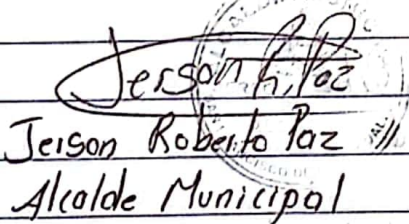 Jerson R. Paz
Jeison Roberto Paz
Alcalde Municipal